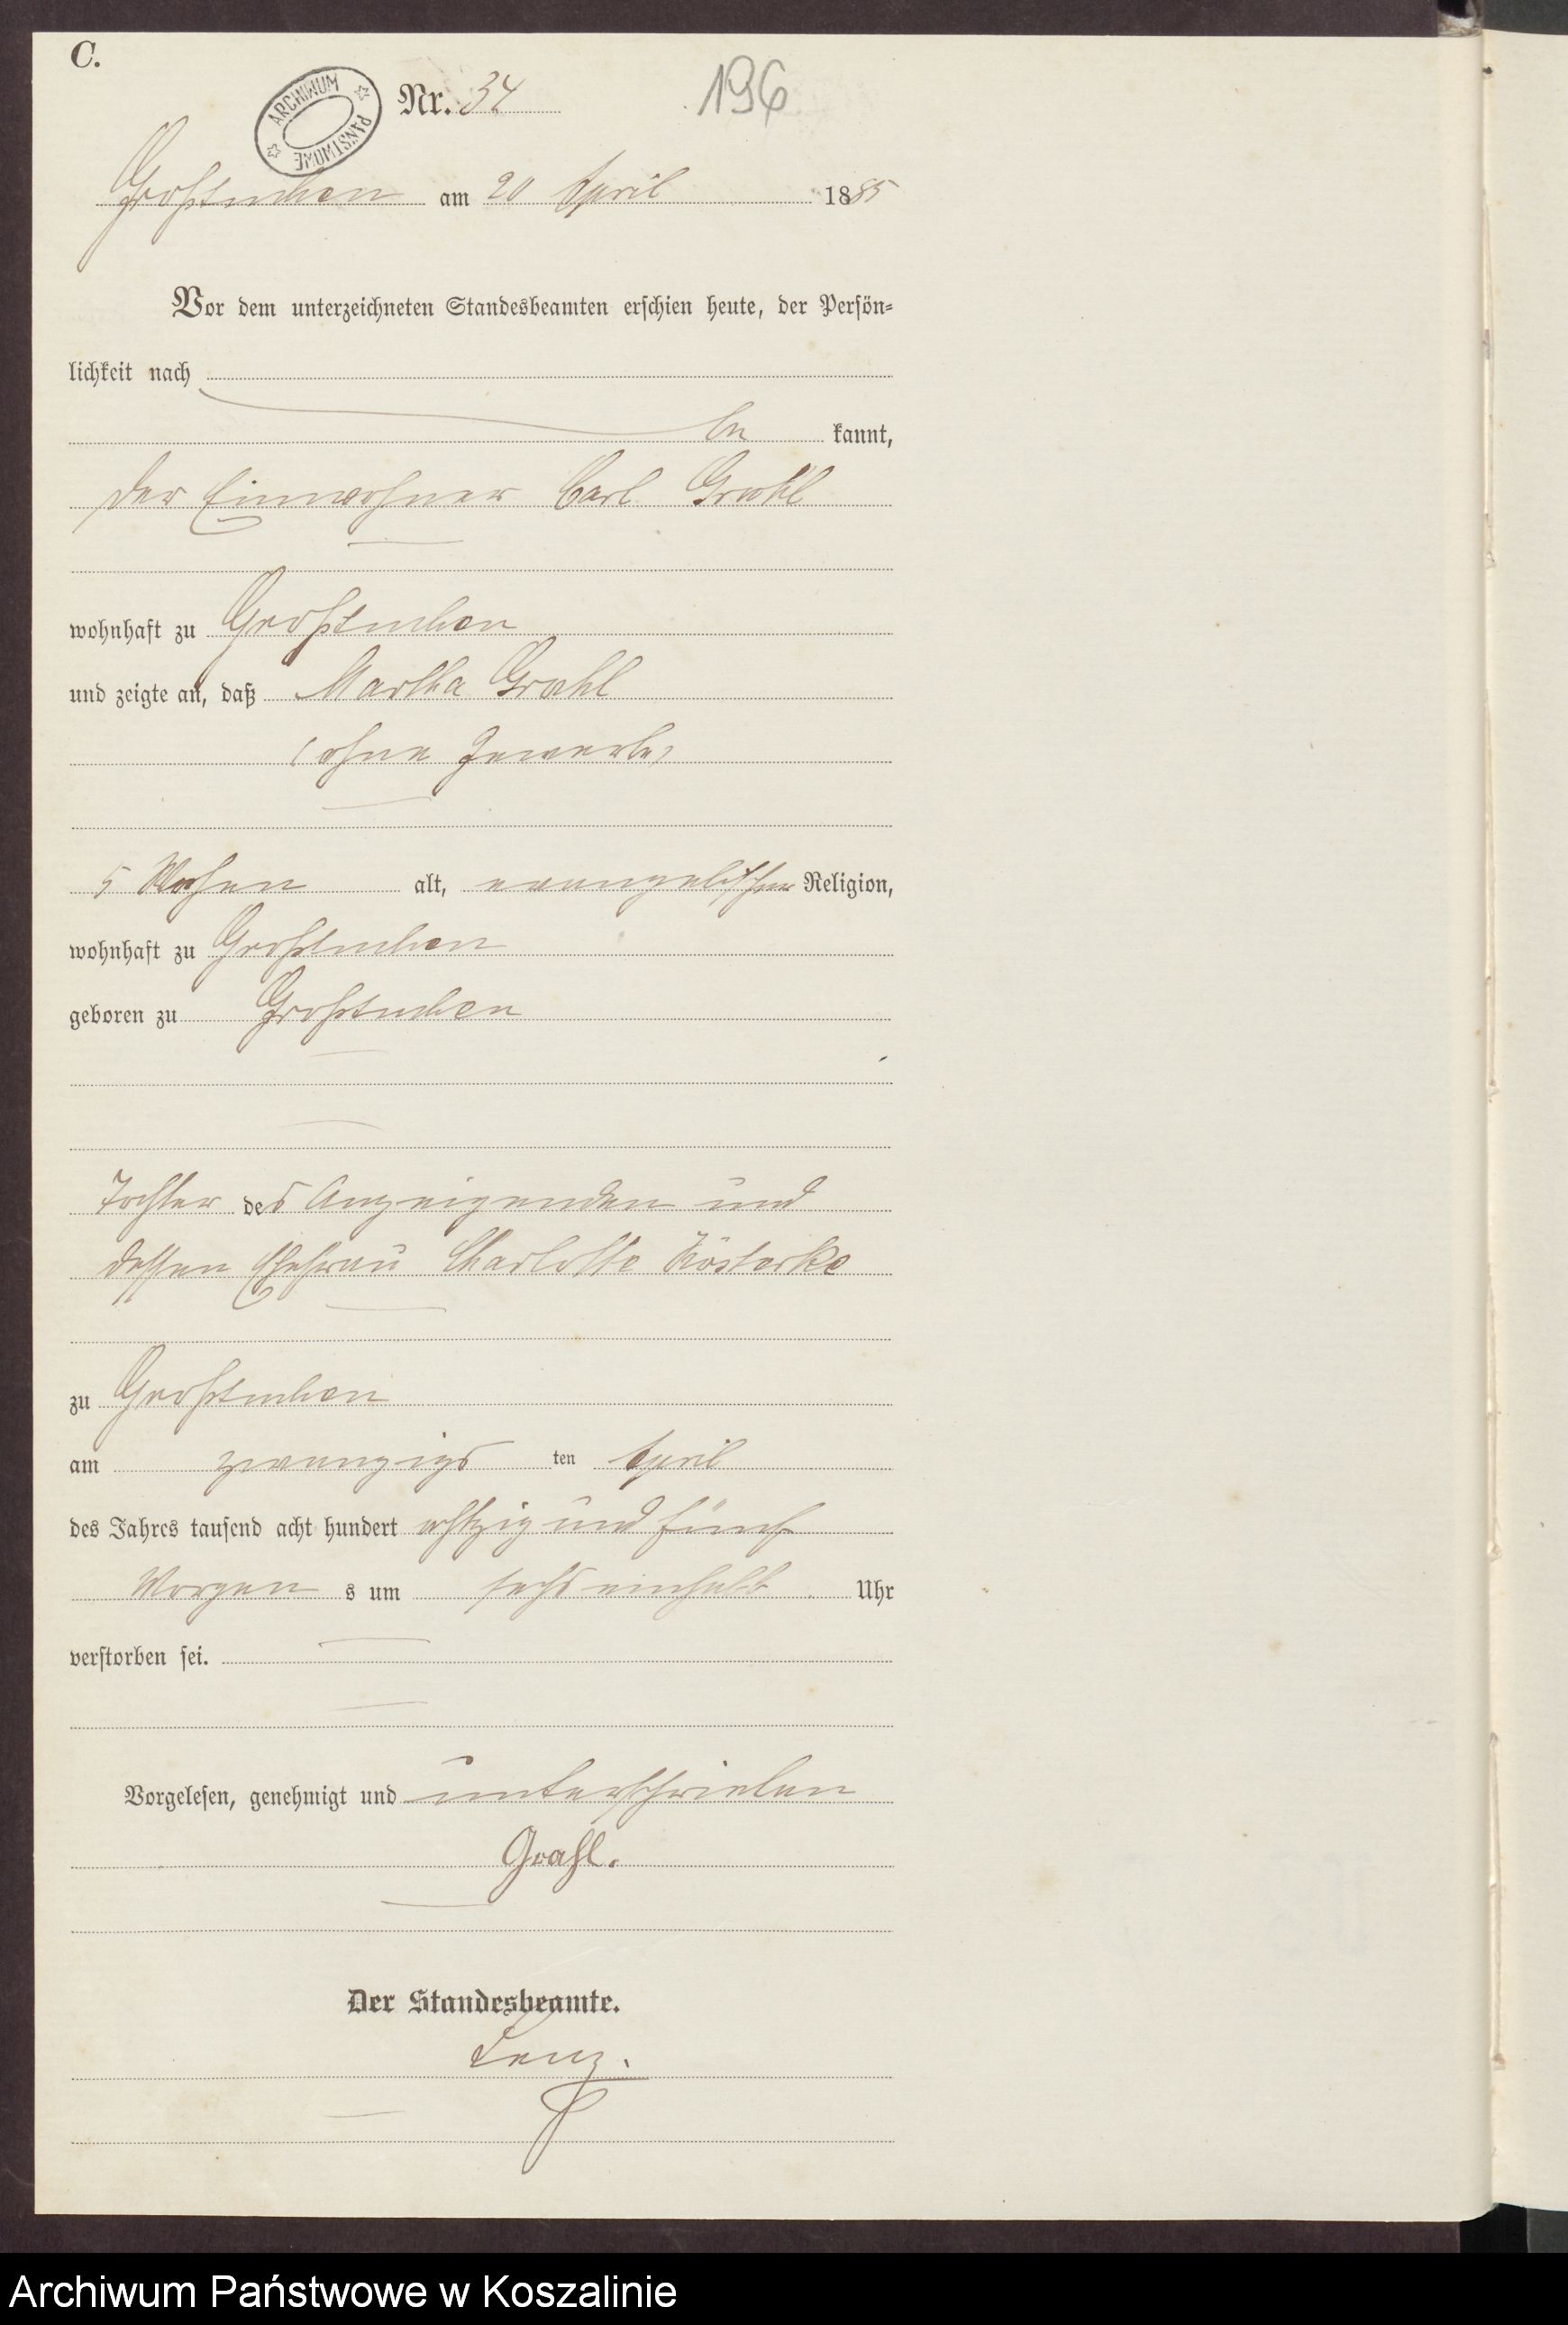 C.
ARCHIWUM PAŃSTWOWE
Nr. 34
196
Großtuchen am 20 April 1885
Vor dem unterzeichneten Standesbeamten erschien heute, der Persön=
lichkeit nach
be kannt,
der Einwohner Carl Grahl
wohnhaft zu Großtuchen
und zeigte an, daß Martha Grahl
(ohne Gewerbe)
5 Wochen alt, evangelischer Religion,
wohnhaft zu Großtuchen
geboren zu Großtuchen
Tochter des Anzeigenden und
dessen Ehefrau Charlotte Kösterke
zu Großtuchen
am zwanzigs ten April
des Jahres tausend acht hundert achtzig und fünf
Morgen s um sechseinhalb Uhr
verstorben sei.
Vorgelesen, genehmigt und unterschrieben
Grahl.
Der Standesbeamte.
Lenz.
Archiwum Państwowe w Koszalinie